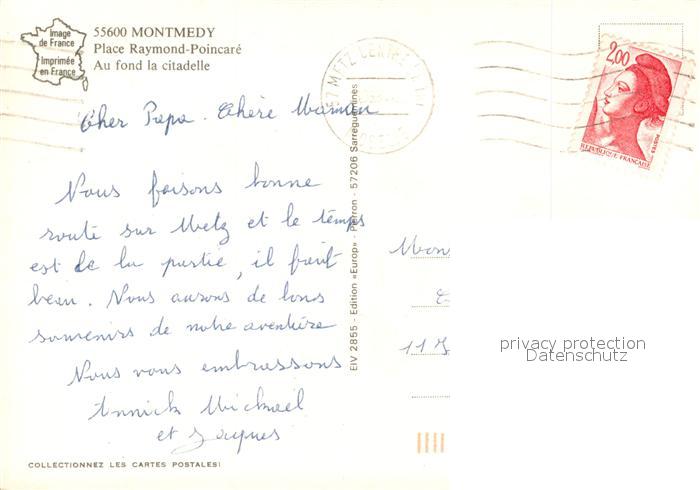 Image
de France
Imprimée
en France
55600 MONTMEDY
Place Raymond-Poincaré
Au fond la citadelle
METZ
2,00
POSTES
REPUBLIQUE FRANÇAISE
Cher Papa. Chère Maman
Nous faisons bonne
route sur Metz et le temps
est de la partie, il fait
beau. Nous aurons de bons
souvenirs de notre aventure
Nous vous embrassons
Annick Mickaël
et Jacques
EIV 2855 - Edition «Europ» - Pierron - 57206 Sarreguemines
Mon
11
privacy protection
Datenschutz
COLLECTIONNEZ LES CARTES POSTALES!